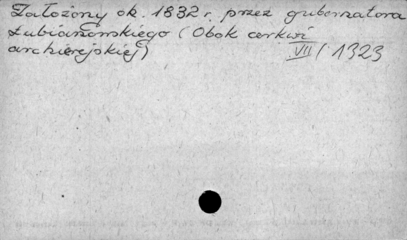 Założony ok. 1832 r. przez gubernatora
Łubianowskiego (Obok cerkwi
archierejskiej) VII/1323